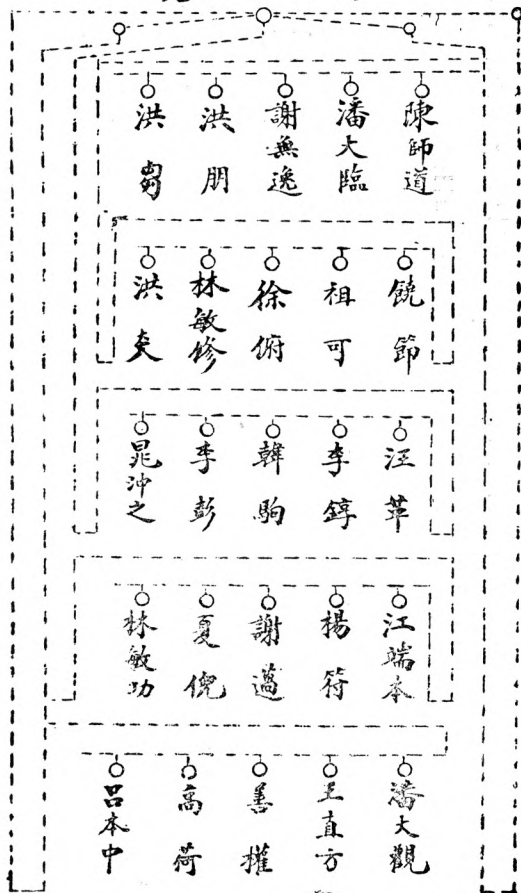 陳師道
潘大臨
謝無逸
洪朋
洪芻
饒節
祖可
徐俯
林敏修
洪炎
汪革
李錞
韓駒
李彭
晁冲之
江端本
楊符
謝薖
夏倪
林敏功
潘大觀
王直方
善權
高荷
呂本中